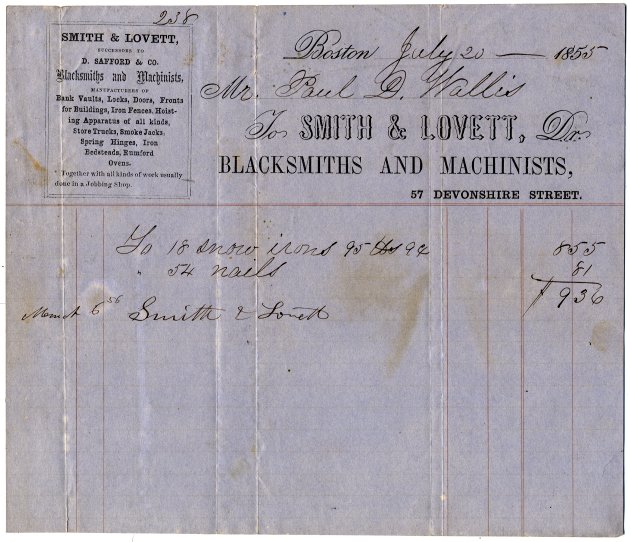 238
SMITH & LOVETT,
SUCCESSORS TO
D. SAFFORD & CO.
Blacksmiths and Machinists,
MANUFACTURERS OF
Bank Vaults, Locks, Doors, Fronts
for Buildings, Iron Fences, Hoist-
ing Apparatus of all kinds,
Store Trucks, Smoke Jacks,
Spring Hinges, Iron
Bedsteads, Rumford
Ovens.
Together with all kinds of work usually
done in a Jobbing Shop.
Boston July 20 — 1855
Mr. Paul D. Wallis
To SMITH & LOVETT, Dr.
BLACKSMITHS AND MACHINISTS,
57 DEVONSHIRE STREET.
To 18 snow irons 95 lbs 9¢ 855
" 54 nails 81
936
6 56 Smith & Lovett